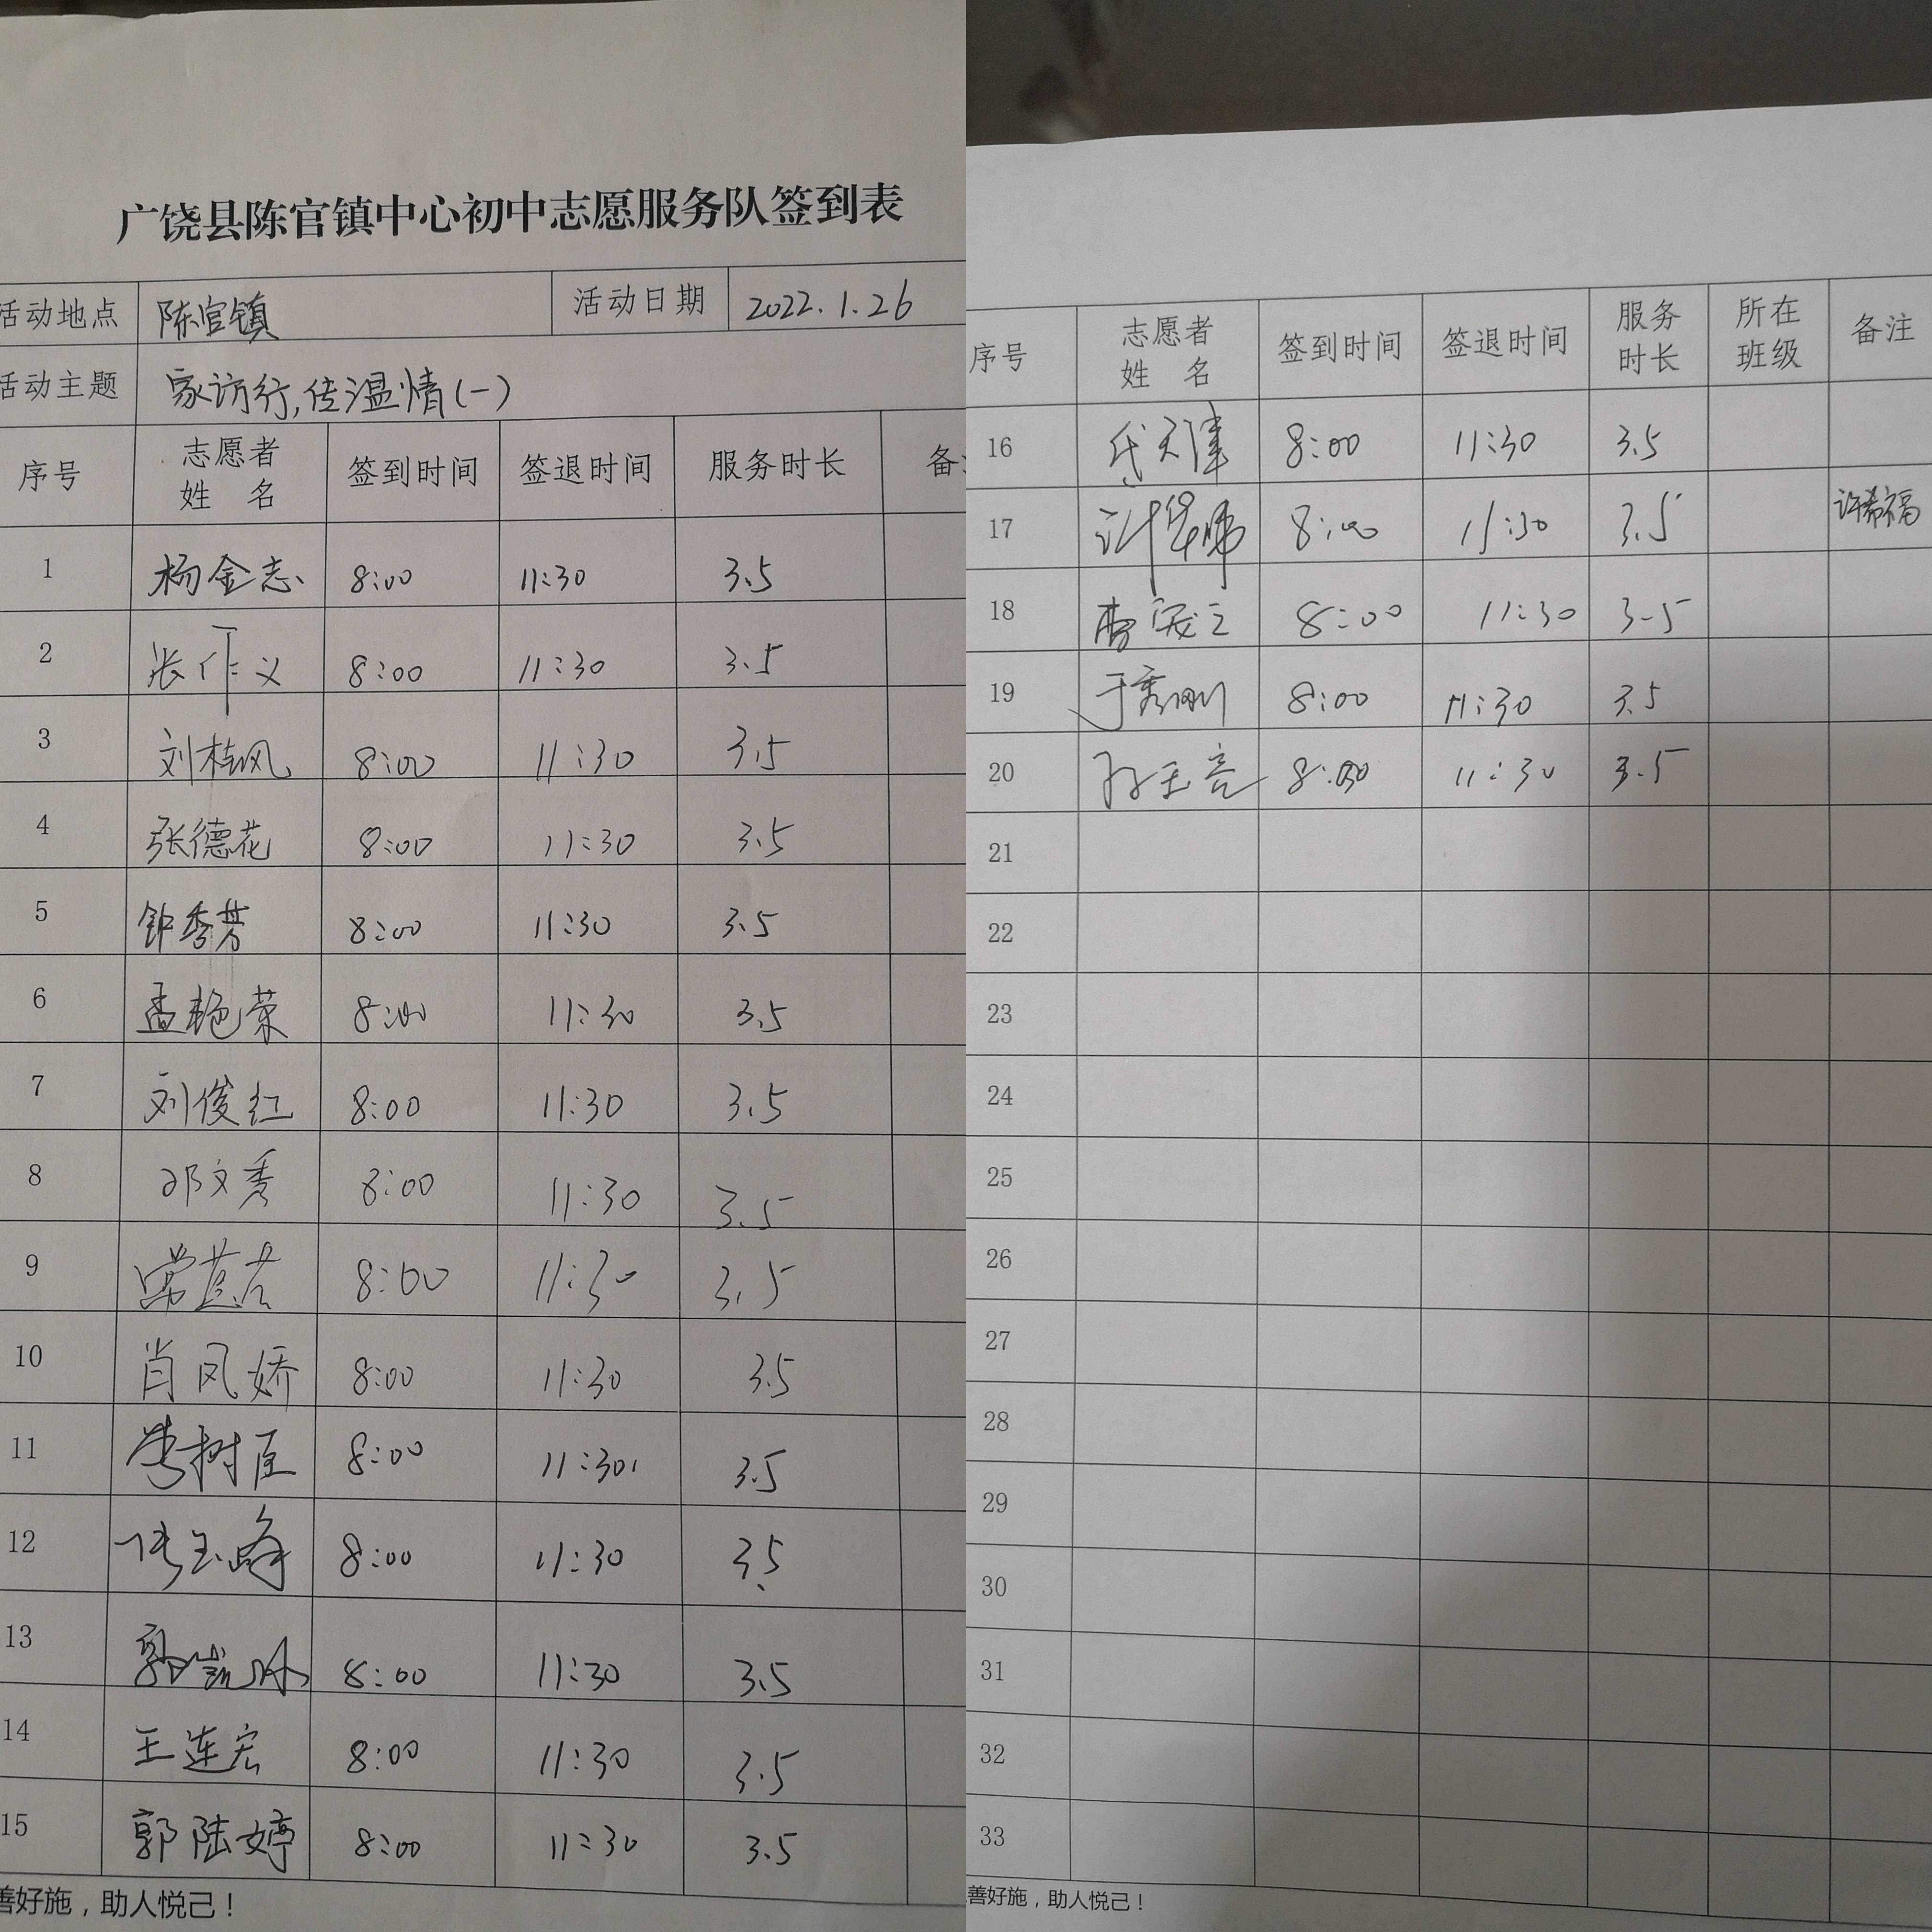 广饶县陈官镇中心初中志愿服务队签到表
活动地点 陈官镇 活动日期 2022.1.26
活动主题 家访行,传温情(一)
序号 志愿者姓 名 签到时间 签退时间 服务时长 备
1 杨金志 8:00 11:30 3.5
2 张作义 8:00 11:30 3.5
3 刘桂风 8:00 11:30 3.5
4 张德花 8:00 11:30 3.5
5 钟秀芳 8:00 11:30 3.5
6 孟艳荣 8:00 11:30 3.5
7 刘俊红 8:00 11:30 3.5
8 邓文秀 8:00 11:30 3.5
9 8:00 11:30 3.5
10 肖凤娇 8:00 11:30 3.5
11 8:00 11:30 3.5
12 张玉峰 8:00 11:30 3.5
13 8:00 11:30 3.5
14 王连宏 8:00 11:30 3.5
15 郭陆婷 8:00 11:30 3.5
善好施，助人悦己！
序号 志愿者姓 名 签到时间 签退时间 服务时长 所在班级 备注
16 代天津 8:00 11:30 3.5
17 8:00 11:30 3.5 许希福
18 8:00 11:30 3.5
19 于秀刚 8:00 11:30 3.5
20 孙玉亮 8:00 11:30 3.5
21
22
23
24
25
26
27
28
29
30
31
32
33
善好施，助人悦己！